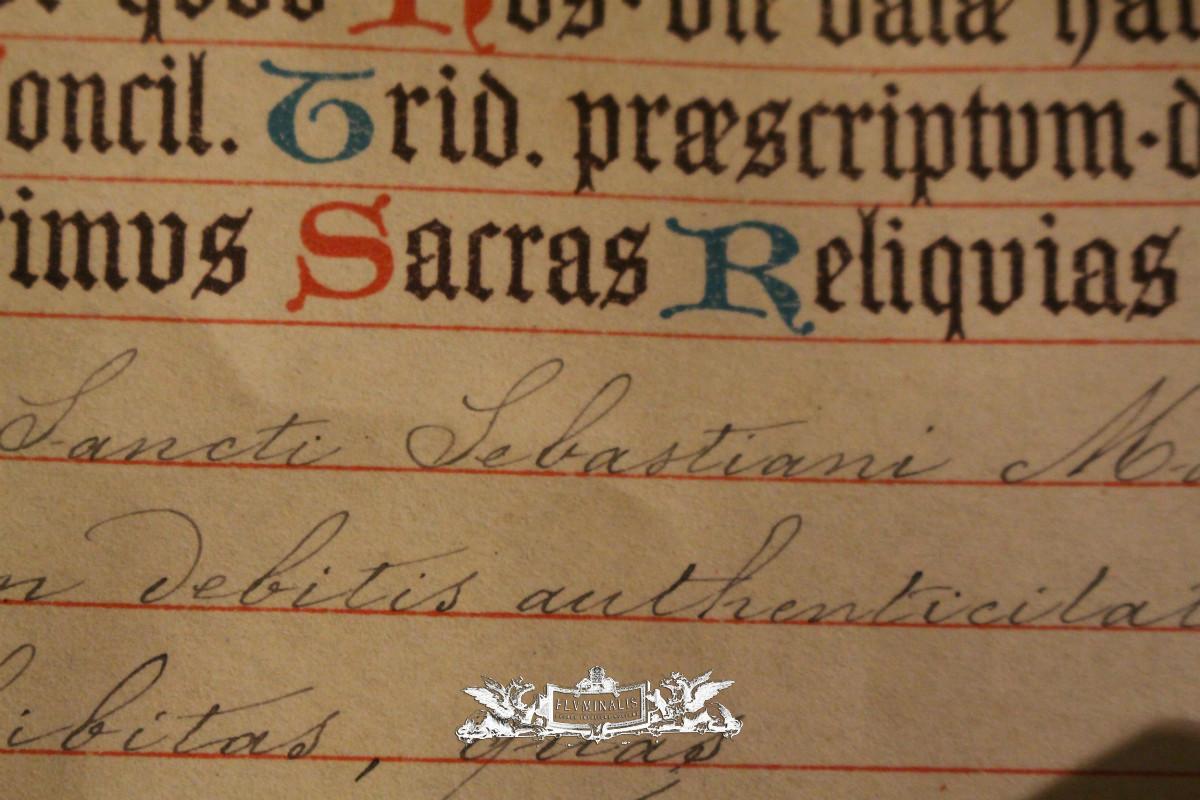 quod Nos. vit datæ
oncil. Trid. præscriptvm. d
rimvs Sacras Reliqvias
Sancti Sebastiani M
m debitis authenticitat
ibitas, quas
FLVMINALIS